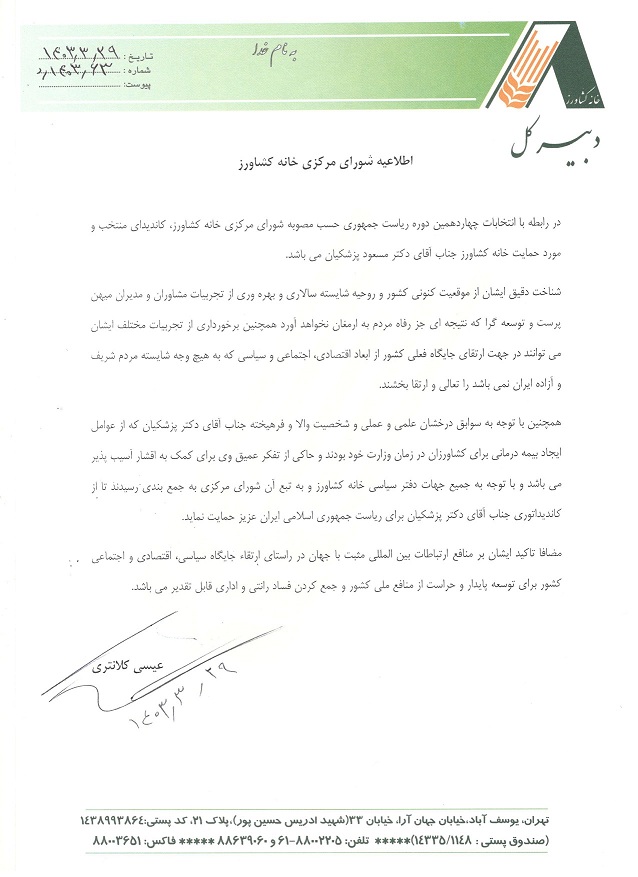 به نام خدا
تاریخ : ۱۴۰۳,۳,۲۹
شماره : ۱۴۰۳,۶۳
پیوست:
خانه کشاورز
دبیر کل
اطلاعیه شورای مرکزی خانه کشاورز
در رابطه با انتخابات چهاردهمین دوره ریاست جمهوری حسب مصوبه شورای مرکزی خانه کشاورز، کاندیدای منتخب و
مورد حمایت خانه کشاورز جناب آقای دکتر مسعود پزشکیان می باشد.
شناخت دقیق ایشان از موقعیت کنونی کشور و روحیه شایسته سالاری و بهره وری از تجربیات مشاوران و مدیران میهن
پرست و توسعه گرا که نتیجه ای جز رفاه مردم به ارمغان نخواهد آورد همچنین برخورداری از تجربیات مختلف ایشان
می توانند در جهت ارتقای جایگاه فعلی کشور از ابعاد اقتصادی، اجتماعی و سیاسی که به هیچ وجه شایسته مردم شریف
و آزاده ایران نمی باشد را تعالی و ارتقا بخشند.
همچنین با توجه به سوابق درخشان علمی و عملی و شخصیت والا و فرهیخته جناب آقای دکتر پزشکیان که از عوامل
ایجاد بیمه درمانی برای کشاورزان در زمان وزارت خود بودند و حاکی از تفکر عمیق وی برای کمک به اقشار آسیب پذیر
می باشد و با توجه به جمیع جهات دفتر سیاسی خانه کشاورز و به تبع آن شورای مرکزی به جمع بندی رسیدند تا از
کاندیداتوری جناب آقای دکتر پزشکیان برای ریاست جمهوری اسلامی ایران عزیز حمایت نماید.
مضافا تاکید ایشان بر منافع ارتباطات بین المللی مثبت با جهان در راستای ارتقاء جایگاه سیاسی، اقتصادی و اجتماعی
کشور برای توسعه پایدار و حراست از منافع ملی کشور و جمع کردن فساد رانتی و اداری قابل تقدیر می باشد.
عیسی کلانتری
۱۴۰۳,۳,۲۹
تهران، یوسف آباد،خیابان جهان آرا، خیابان ۳۳(شهید ادریس حسین پور)،پلاک ۲۱، کد پستی:۱۴۳۸۹۹۳۸۶۴
(صندوق پستی : ۱۴۳۳۵/۱۱۴۸)***** تلفن: ۸۸۰۰۲۲۰۵-۶۱ و ۸۸۶۳۹۰۶۰ ***** فاکس: ۸۸۰۰۳۶۵۱